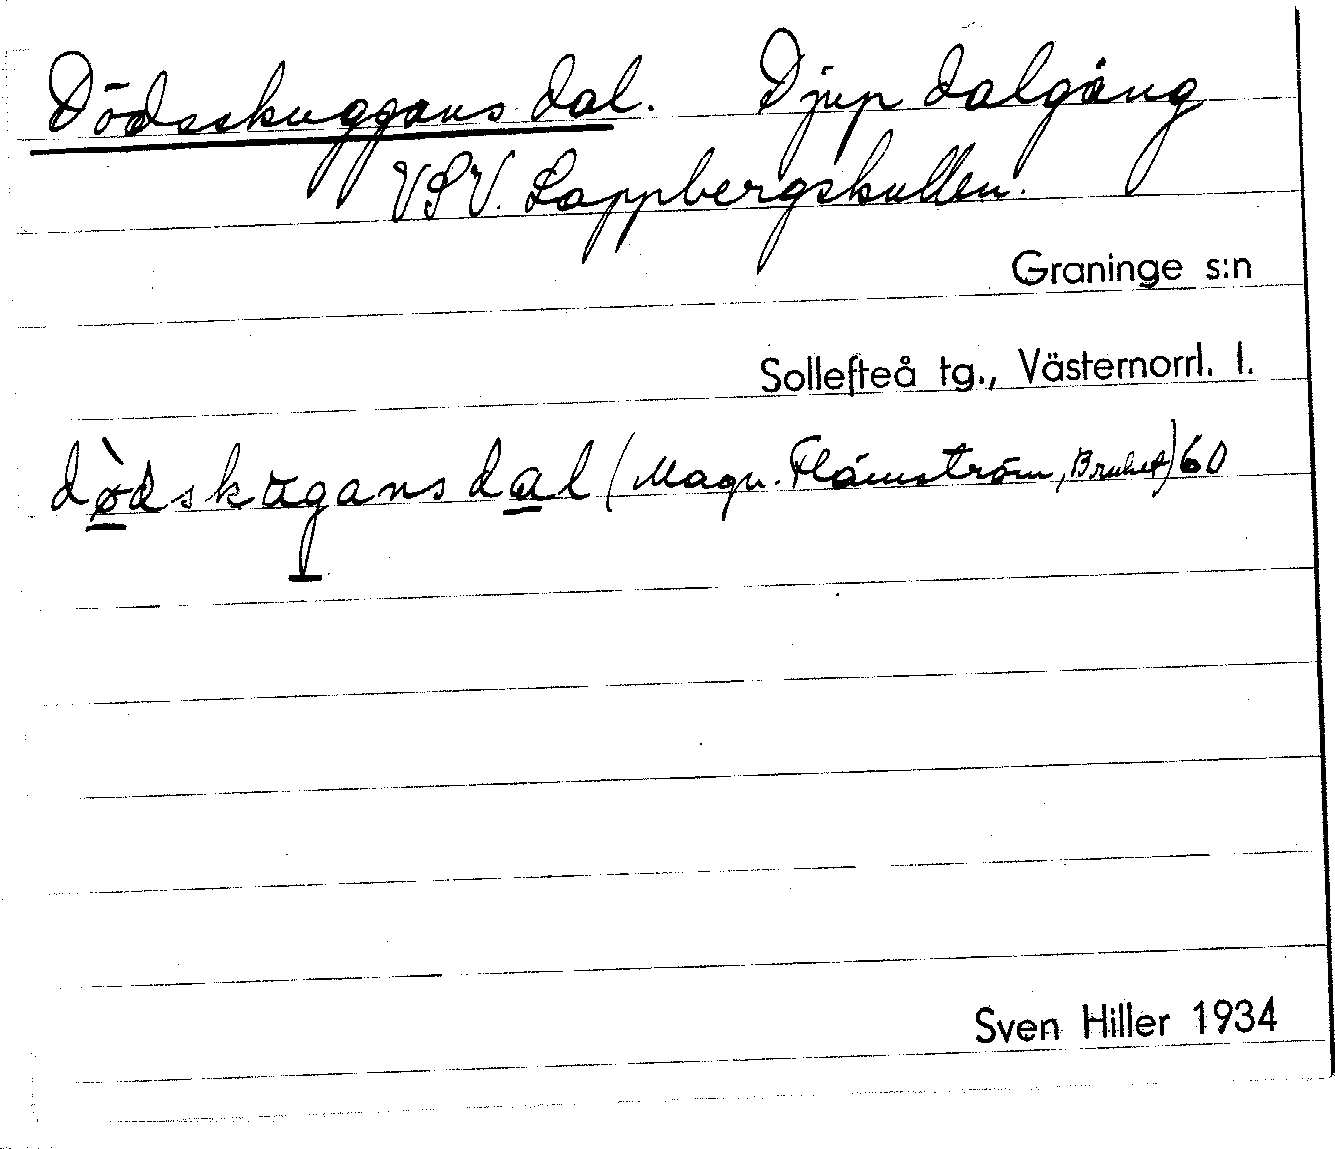 Dödsskuggans dal. Djup dalgång
VSV. Lappbergskullen.
Graninge s:n
Sollefteå tg., Västernorrl. l.
dø̀dskugans dal (Magn. Flämström, Bruket) 60
Sven Hiller 1934